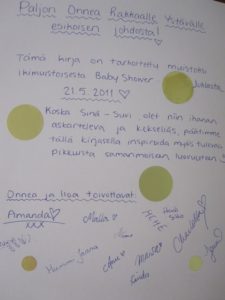 Paljon Onnea Rakkaalle Ystävälle
esikoisen johdosta!
Tämä kirja on tarkoitettu muistoksi
ikimuistoisesta Baby Shower
Juhlasta
21.5.2011
Koska Sinä - Suvi olet niin ihanan
askarteleva ja kekseliäs, päätimme
tällä kirjasella inspiroida myös tulevaa
pikkuista samanmoiseen luovuuteen
Onnea ja iloa toivottavat:
Amanda
Heidi
Charlotta
Jaana
Anu
Maria